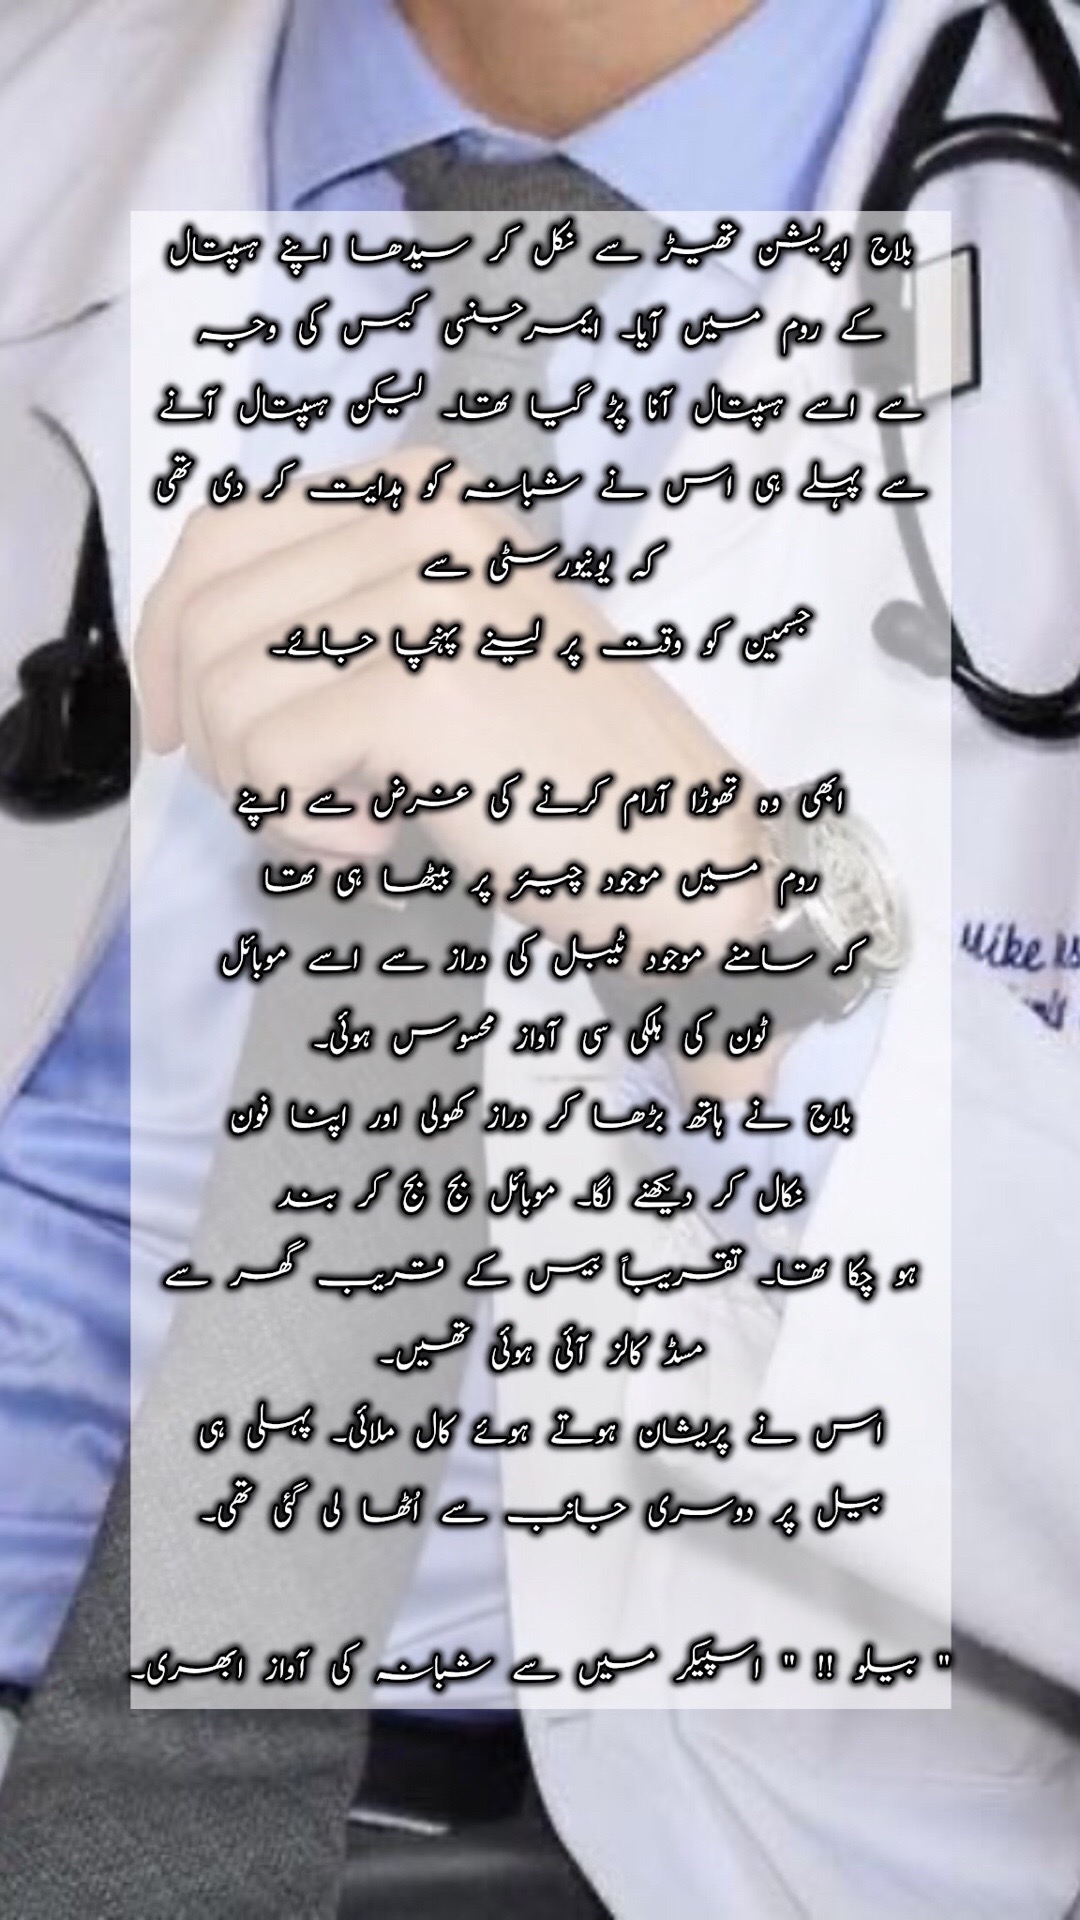 بلاج اپریشن تھیڑ سے نکل کر سیدھا اپنے ہسپتال
کے روم میں آیا۔ ایمرجنسی کیس کی وجہ
سے اسے ہسپتال آنا پڑ گیا تھا۔ لیکن ہسپتال آنے
سے پہلے ہی اس نے شبانہ کو ہدایت کر دی تھی
کہ یونیورسٹی سے
جسمین کو وقت پر لینے پہنچا جائے۔
ابھی وہ تھوڑا آرام کرنے کی غرض سے اپنے
روم میں موجود چیئر پر بیٹھا ہی تھا
کہ سامنے موجود ٹیبل کی دراز سے اسے موبائل
ٹون کی ہلکی سی آواز محسوس ہوئی۔
بلاج نے ہاتھ بڑھا کر دراز کھولی اور اپنا فون
نکال کر دیکھنے لگا۔ موبائل بج بج کر بند
ہو چکا تھا۔ تقریباً بیس کے قریب گھر سے
مسڈ کالز آئی ہوئی تھیں۔
اس نے پریشان ہوتے ہوئے کال ملائی۔ پہلی ہی
بیل پر دوسری جانب سے اُٹھا لی گئی تھی۔
" ہیلو !! " اسپیکر میں سے شبانہ کی آواز ابھری۔
Mike